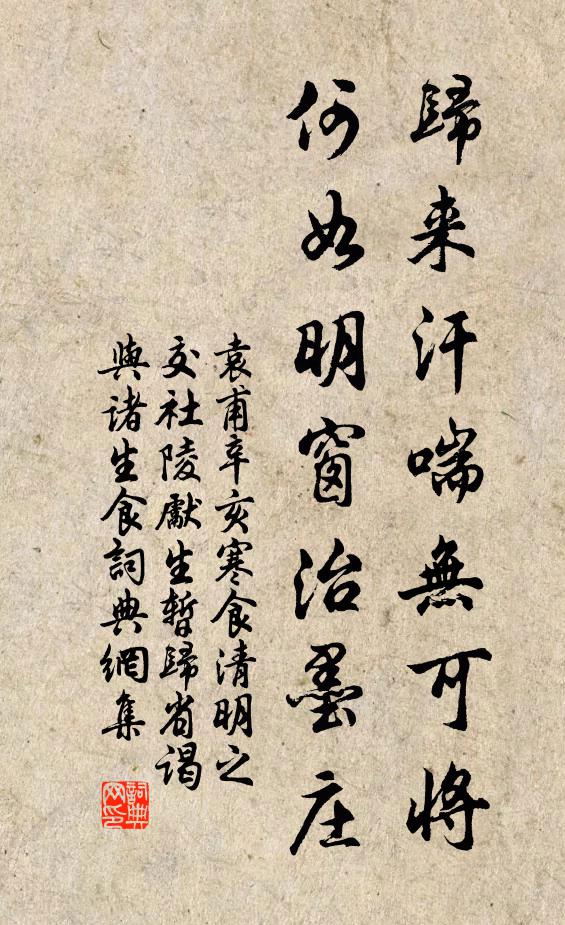 歸来汗喘無可將
何如明窗治墨庄
袁甫辛亥寒食清明之
交社陵獻生暫歸省謁
與诸生食詞典網集
詞典网印